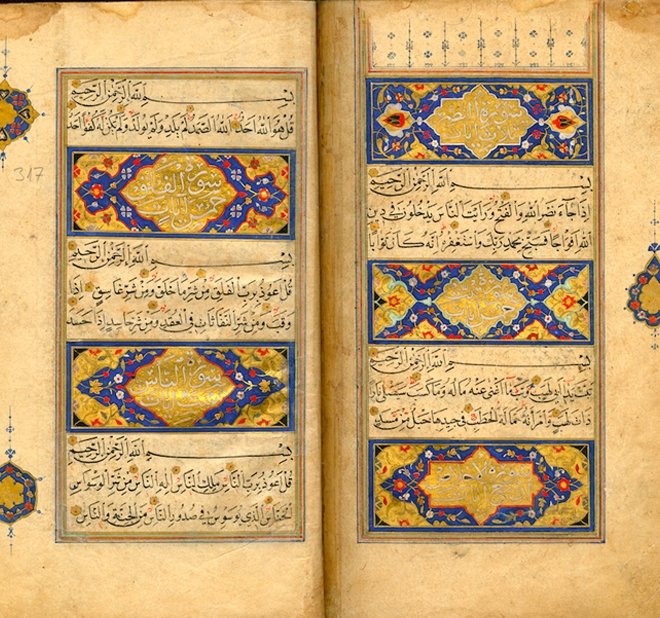 سورة النصر
ثلاث آيات
بِسْمِ اللهِ الرَّحْمٰنِ الرَّحِيمِ
اِذَا جَاءَ نَصْرُ اللهِ وَالْفَتْحُ وَرَاَيْتَ النَّاسَ يَدْخُلُونَ فِي دِينِ
اللهِ اَفْوَاجًا فَسَبِّحْ بِحَمْدِ رَبِّكَ وَاسْتَغْفِرْهُ اِنَّهُ كَانَ تَوَّابًا
خمس آيات
بِسْمِ اللهِ الرَّحْمٰنِ الرَّحِيمِ
تَبَّتْ يَدَا اَبِي لَهَبٍ وَتَبَّ مَا اَغْنٰى عَنْهُ مَالُهُ وَمَا كَسَبَ سَيَصْلٰى نَارًا
ذَاتَ لَهَبٍ وَامْرَاَتُهُ حَمَّالَةَ الْحَطَبِ فِي جِيدِهَا حَبْلٌ مِنْ مَسَدٍ
سورة الاخلاص
بِسْمِ اللهِ الرَّحْمٰنِ الرَّحِيمِ
قُلْ هُوَ اللهُ اَحَدٌ اَللهُ الصَّمَدُ لَمْ يَلِدْ وَلَمْ يُولَدْ وَلَمْ يَكُنْ لَهُ كُفُوًا اَحَدٌ
سورة الفلق
خمس آيات
317
بِسْمِ اللهِ الرَّحْمٰنِ الرَّحِيمِ
قُلْ اَعُوذُ بِرَبِّ الْفَلَقِ مِنْ شَرِّ مَا خَلَقَ وَمِنْ شَرِّ غَاسِقٍ اِذَا
وَقَبَ وَمِنْ شَرِّ النَّفَّاثَاتِ فِي الْعُقَدِ وَمِنْ شَرِّ حَاسِدٍ اِذَا حَسَدَ
سورة الناس
بِسْمِ اللهِ الرَّحْمٰنِ الرَّحِيمِ
قُلْ اَعُوذُ بِرَبِّ النَّاسِ مَلِكِ النَّاسِ اِلٰهِ النَّاسِ مِنْ شَرِّ الْوَسْوَاسِ
الْخَنَّاسِ الَّذِي يُوَسْوِسُ فِي صُدُورِ النَّاسِ مِنَ الْجِنَّةِ وَالنَّاسِ